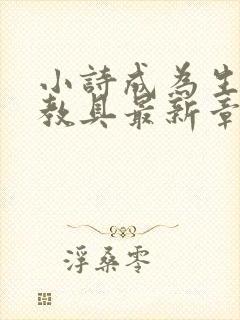 小詩成為生
教具最新章
浮桑零